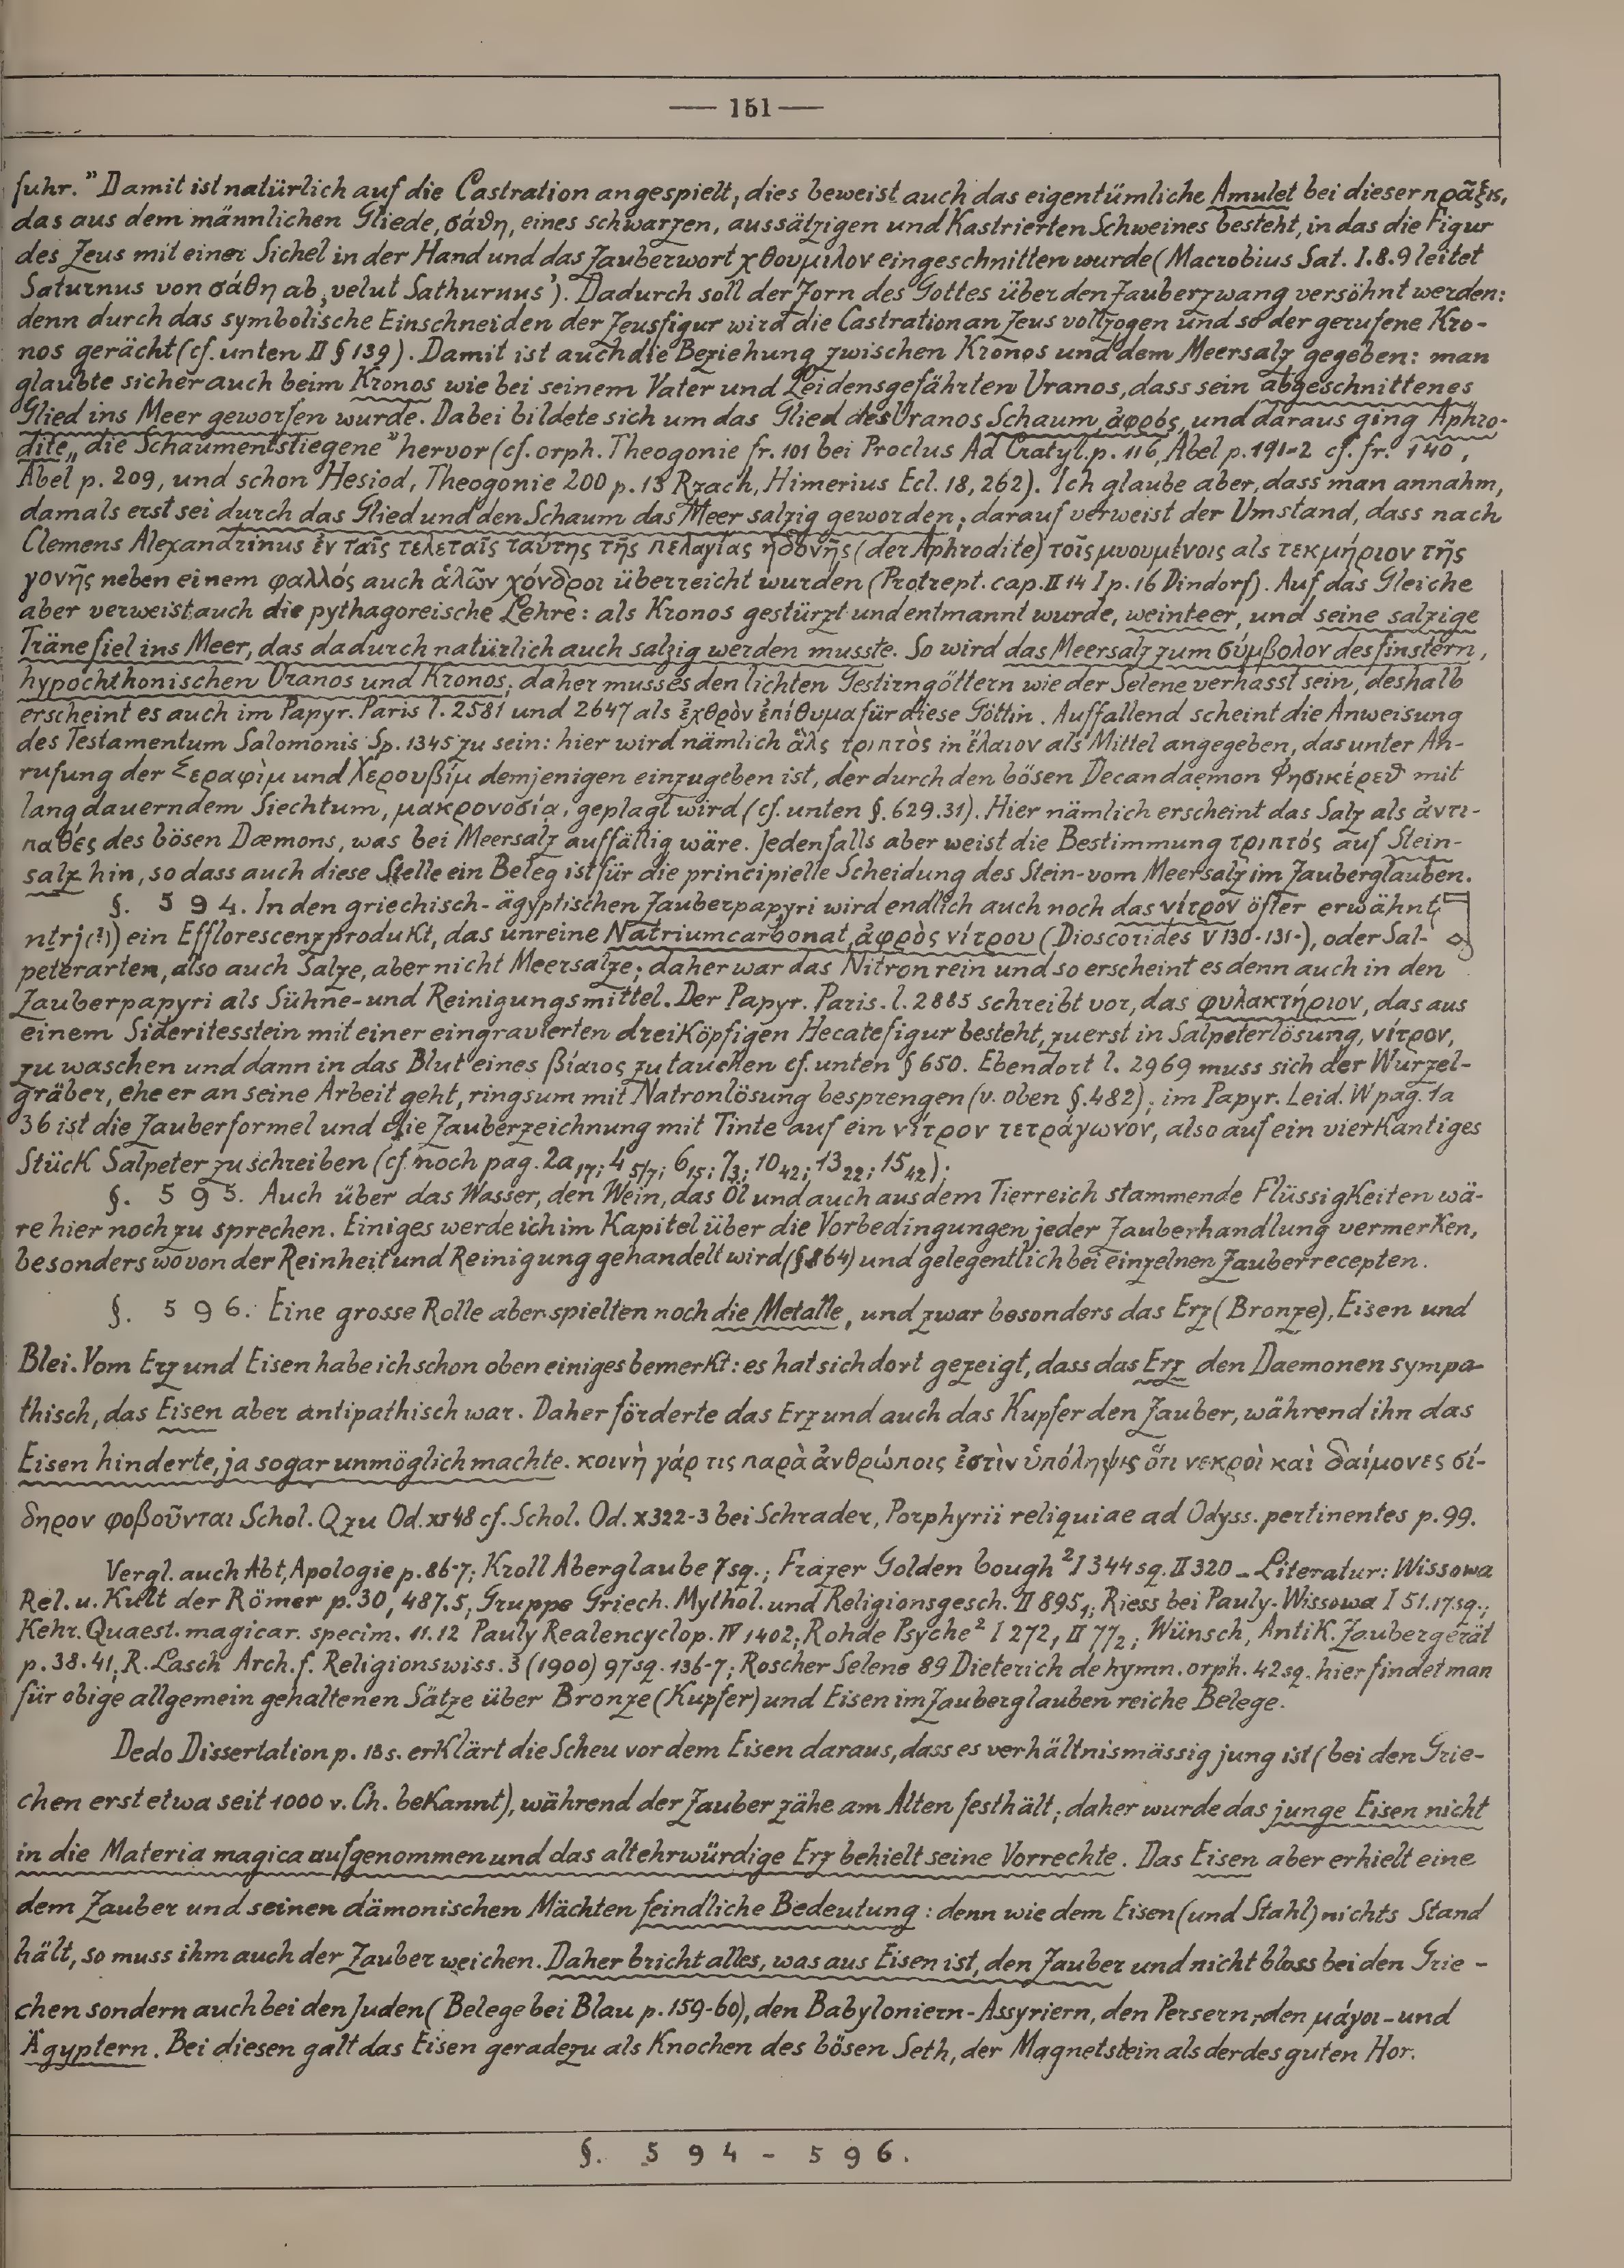 — 151 —
fuhr.” Damit ist natürlich auf die Castration angespielt; dies beweist auch das eigentümliche Amulet bei dieser πρᾶξις,
das aus dem männlichen Gliede, σάθη, eines schwarzen, aussätzigen und Kastrierten Schweines besteht, in das die Figur
des Zeus mit einer Sichel in der Hand und das Zauberwort χθουμιλον eingeschnitten wurde (Macrobius Sat. I.8.9 leitet
Saturnus von σάθη ab ‚velut Sathurnus’). Dadurch soll der Zorn des Gottes über den Zauberzwang versöhnt werden:
denn durch das symbolische Einschneiden der Zeusfigur wird die Castration an Zeus vollzogen und so der gerufene Kro-
nos gerächt (cf. unten II § 139). Damit ist auch die Beziehung zwischen Kronos und dem Meersalz gegeben: man
glaubte sicher auch beim Kronos wie bei seinem Vater und Leidensgefährten Uranos, dass sein abgeschnittenes
Glied ins Meer geworfen wurde. Dabei bildete sich um das Glied des Uranos Schaum, ἀφρός, und daraus ging Aphro-
dite „die Schaumentstiegene” hervor (cf. orph. Theogonie fr. 101 bei Proclus Ad Cratyl. p. 116, Abel p. 191-2 cf. fr. 140,
Abel p. 209, und schon Hesiod, Theogonie 200 p. 13 Rzach, Himerius Ecl. 18, 262). Ich glaube aber, dass man annahm,
damals erst sei durch das Glied und den Schaum das Meer salzig geworden; darauf verweist der Umstand, dass nach
Clemens Alexandrinus ἐν ταῖς τελεταῖς ταύτης τῆς πελαγίας ἡδονῆς (der Aphrodite) τοῖς μυουμένοις als τεκμήριον τῆς
γονῆς neben einem φαλλός auch ἁλῶν χόνδροι überreicht wurden (Protrept. cap. II 14 I p. 16 Dindorf). Auf das Gleiche
aber verweist auch die pythagoreische Lehre: als Kronos gestürzt und entmannt wurde, weinte er, und seine salzige
Träne fiel ins Meer, das dadurch natürlich auch salzig werden musste. So wird das Meersalz zum σύμβολον des finstern,
hypochthonischen Uranos und Kronos; daher muss es den lichten Gestirngöttern wie der Selene verhasst sein, deshalb
erscheint es auch im Papyr. Paris l. 2581 und 2647 als ἐχθρὸν ἐπίθυμα für diese Göttin. Auffallend scheint die Anweisung
des Testamentum Salomonis Sp. 1345 zu sein: hier wird nämlich ἅλς τριπτὸς in ἔλαιον als Mittel angegeben, das unter An-
rufung der Σεραφὶμ und Χερουβίμ demjenigen einzugeben ist, der durch den bösen Decandaemon Φησικέρεθ mit
lang dauerndem Siechtum, μακρονοσία, geplagt wird (cf. unten §. 629.31). Hier nämlich erscheint das Salz als ἀντι-
παθές des bösen Dæmons, was bei Meersalz auffällig wäre. Jedenfalls aber weist die Bestimmung τριπτός auf Stein-
salz hin, so dass auch diese Stelle ein Beleg ist für die principielle Scheidung des Stein- vom Meersalz im Zauberglauben.
§. 594. In den griechisch-ägyptischen Zauberpapyri wird endlich auch noch das νίτρον öfter erwähnt,
ntrj(?)) ein Efflorescenzprodukt, das unreine Natriumcarbonat, ἀφρὸς νίτρου (Dioscorides V 130-131-), oder Sal-
peterarten, also auch Salze, aber nicht Meersalze; daher war das Nitron rein und so erscheint es denn auch in den
Zauberpapyri als Sühne- und Reinigungsmittel. Der Papyr. Paris. l. 2885 schreibt vor, das φυλακτήριον, das aus
einem Sideritesstein mit einer eingravierten dreiköpfigen Hecatefigur besteht, zuerst in Salpeterlösung, νίτρον,
zu waschen und dann in das Blut eines βίαιος zu tauchen cf. unten § 650. Ebendort l. 2969 muss sich der Wurzel-
gräber, ehe er an seine Arbeit geht, ringsum mit Natronlösung besprengen (v. oben §.482); im Papyr. Leid. W pag. 1a
36 ist die Zauberformel und die Zauberzeichnung mit Tinte auf ein νίτρον τετράγωνον, also auf ein vierkantiges
Stück Salpeter zu schreiben (cf. noch pag. 2a 17; 4 5/7; 6 15; 7 3; 10 42; 13 22; 15 42);
§. 595. Auch über das Wasser, den Wein, das Öl und auch aus dem Tierreich stammende Flüssigkeiten wä-
re hier noch zu sprechen. Einiges werde ich im Kapitel über die Vorbedingungen jeder Zauberhandlung vermerken,
besonders wo von der Reinheit und Reinigung gehandelt wird (§ 864) und gelegentlich bei einzelnen Zauberrecepten.
§. 596. Eine grosse Rolle aber spielten noch die Metalle, und zwar besonders das Erz (Bronze), Eisen und
Blei. Vom Erz und Eisen habe ich schon oben einiges bemerkt: es hat sich dort gezeigt, dass das Erz den Daemonen sympa-
thisch, das Eisen aber antipathisch war. Daher förderte das Erz und auch das Kupfer den Zauber, während ihn das
Eisen hinderte, ja sogar unmöglich machte. κοινὴ γάρ τις παρὰ ἀνθρώποις ἐστὶν ὑπόληψις ὅτι νεκροὶ καὶ δαίμονες σί-
δηρον φοβοῦνται Schol. Q zu Od. XI 48 cf. Schol. Od. X 322-3 bei Schrader, Porphyrii reliquiae ad Odyss. pertinentes p. 99.
Vergl. auch Abt, Apologie p. 86-7; Kroll Aberglaube 7 sq.; Frazer Golden bough ² I 344 sq. II 320 - Literatur: Wissowa
Rel. u. Kult der Römer p. 30, 487.5, Gruppe Griech. Mythol. und Religionsgesch. II 895,; Riess bei Pauly-Wissowa I 51.17 sq.;
Kehr. Quaest. magicar. specim. 11.12 Pauly Realencyclop. IV 1402; Rohde Psyche² I 272, II 77₂; Wünsch, Antik. Zaubergerät
p. 38.41, R. Lasch Arch. f. Religionswiss. 3 (1900) 97 sq. 136-7; Roscher Selene 89 Dieterich de hymn. orph. 42 sq. hier findet man
für obige allgemein gehaltenen Sätze über Bronze (Kupfer) und Eisen im Zauberglauben reiche Belege.
Dedo Dissertation p. 18 s. erklärt die Scheu vor dem Eisen daraus, dass es verhältnismässig jung ist (bei den Grie-
chen erst etwa seit 1000 v. Ch. bekannt), während der Zauber zähe am Alten festhält; daher wurde das junge Eisen nicht
in die Materia magica aufgenommen und das altehrwürdige Erz behielt seine Vorrechte. Das Eisen aber erhielt eine
dem Zauber und seinen dämonischen Mächten feindliche Bedeutung: denn wie dem Eisen (und Stahl) nichts Stand
hält, so muss ihm auch der Zauber weichen. Daher bricht alles, was aus Eisen ist, den Zauber und nicht bloss bei den Grie-
chen sondern auch bei den Juden (Belege bei Blau p. 159-60), den Babyloniern-Assyriern, den Persern, -den μάγοι - und
Ägyptern. Bei diesen galt das Eisen geradezu als Knochen des bösen Seth, der Magnetstein als der des guten Hor.
§. 594-596.